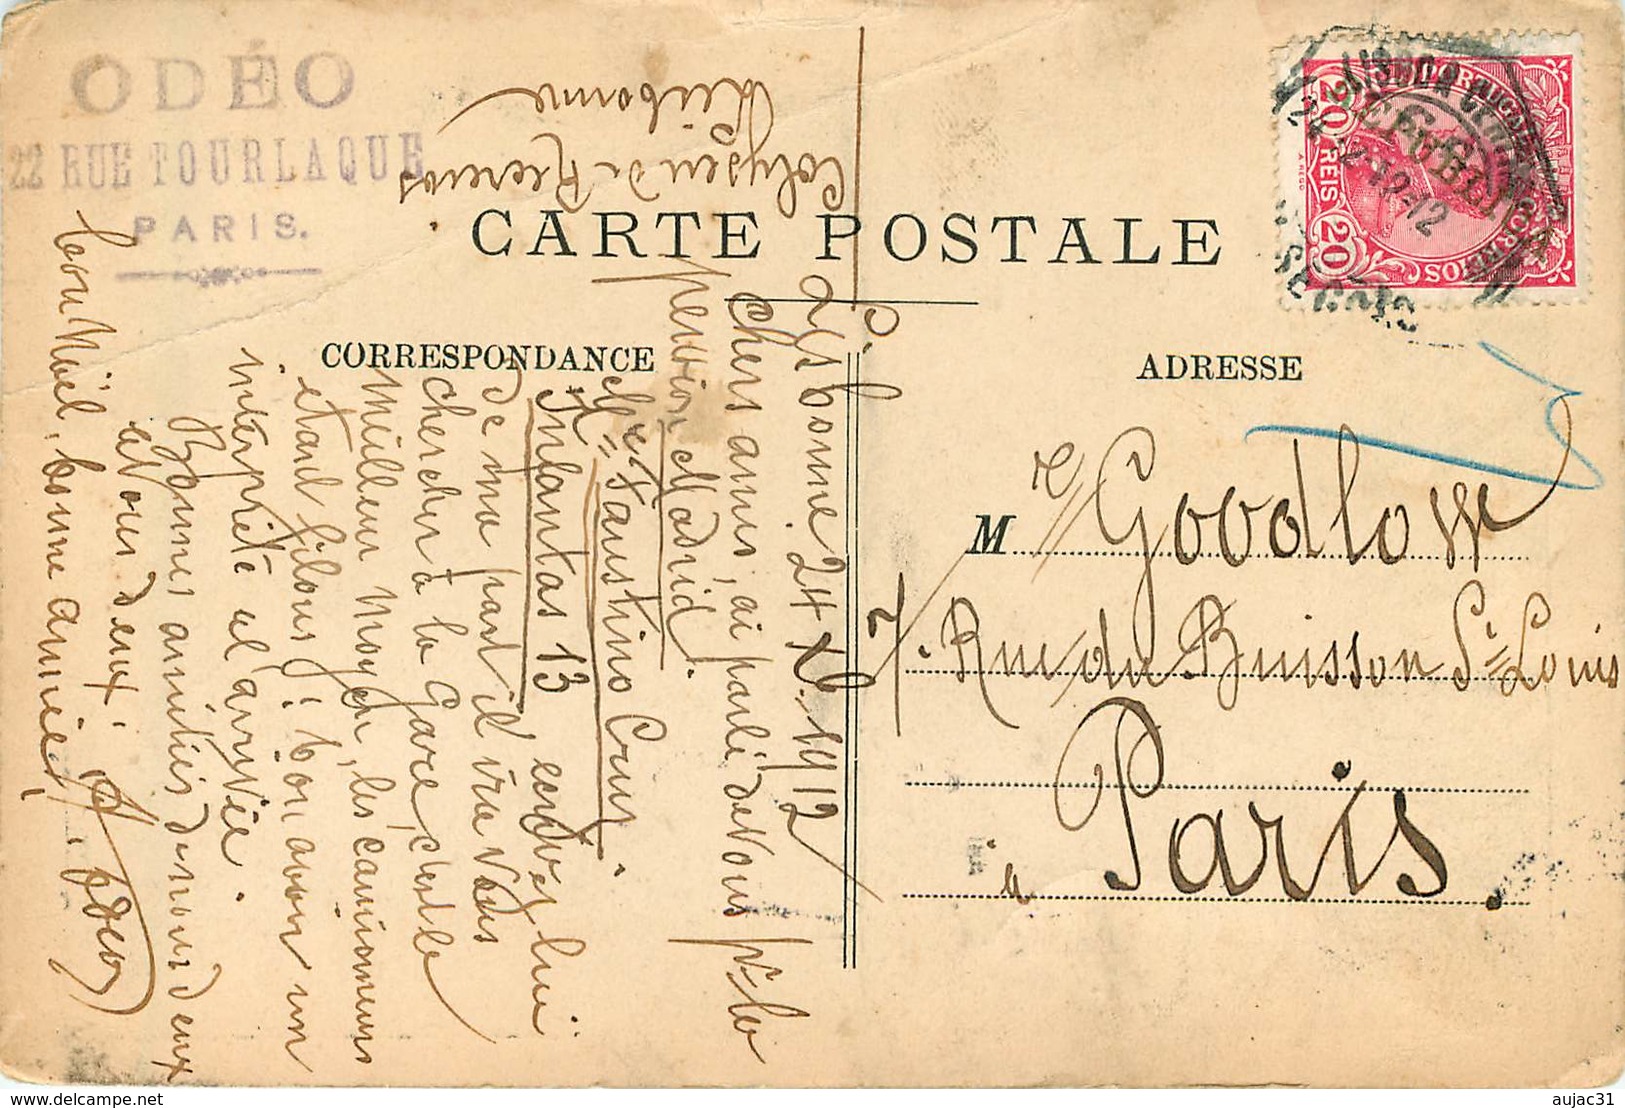 ODÉO
22 RUE TOURLAQUE
PARIS.
CARTE POSTALE
CORRESPONDANCE
ADRESSE
Colyseu de Recreios
Lisbonne
Lisbonne 24 X 1912
Chers amis, ai parlé de vous pr la
pension, Madrid.
Me Faustino Cruz.
Infantas 13, écrivez lui
de ma part il ira vous
chercher à la Gare, c'est le
meilleur moyen, les camionneurs
étant filous! bon avoir un
interprête al arrivée.
Bonnes amitiés de nous deux
à vous deux.
bon Noël, bonne année!
Odéo
M r Goodlow
7. Rue du Buisson St Louis
à Paris.
PORTUGAL
CORREIOS
REPUBLICA
20 REIS 20
LISBOA CENTRAL
24-12-12
aujac31
delcampe.net